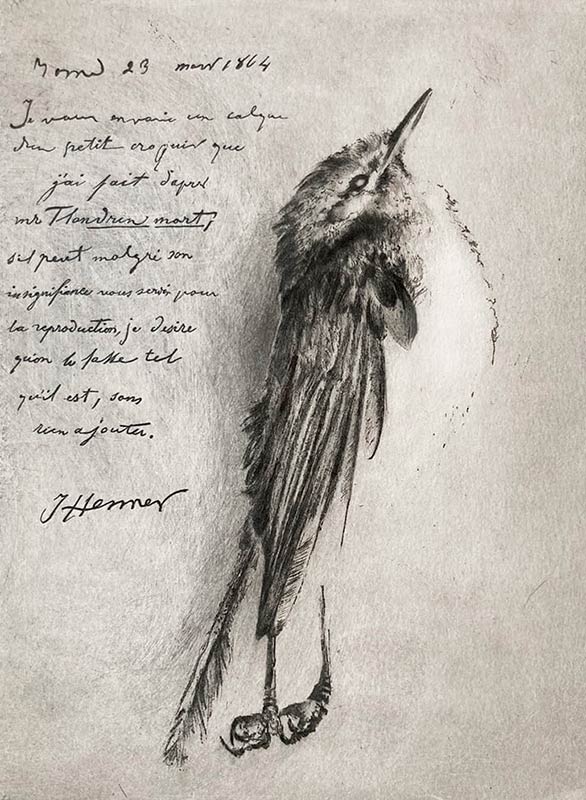 Rome 23 mars 1864
Je vous envoie un calque
d'un petit croquis que
j'ai fait d'apres
mr Flandrin mort,
s'il peut malgré son
insignifiance vous servir pour
la reproduction, je desire
qu'on le fasse tel
qu'il est, sans
rien ajouter.
JHenner